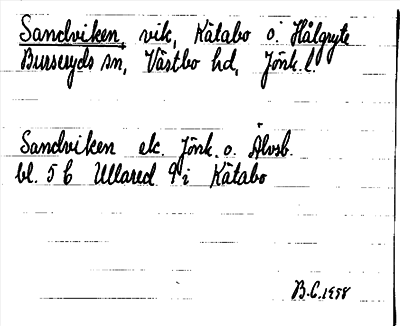 Sandviken, vik, Kätabo o. Hålgryte
Burseryds sn, Västbo hd, Jönk. l.
Sandviken ek. Jönk. o. Älvsb.
bl. 5 C Ullared 9 i Kätabo
B.C. 1958